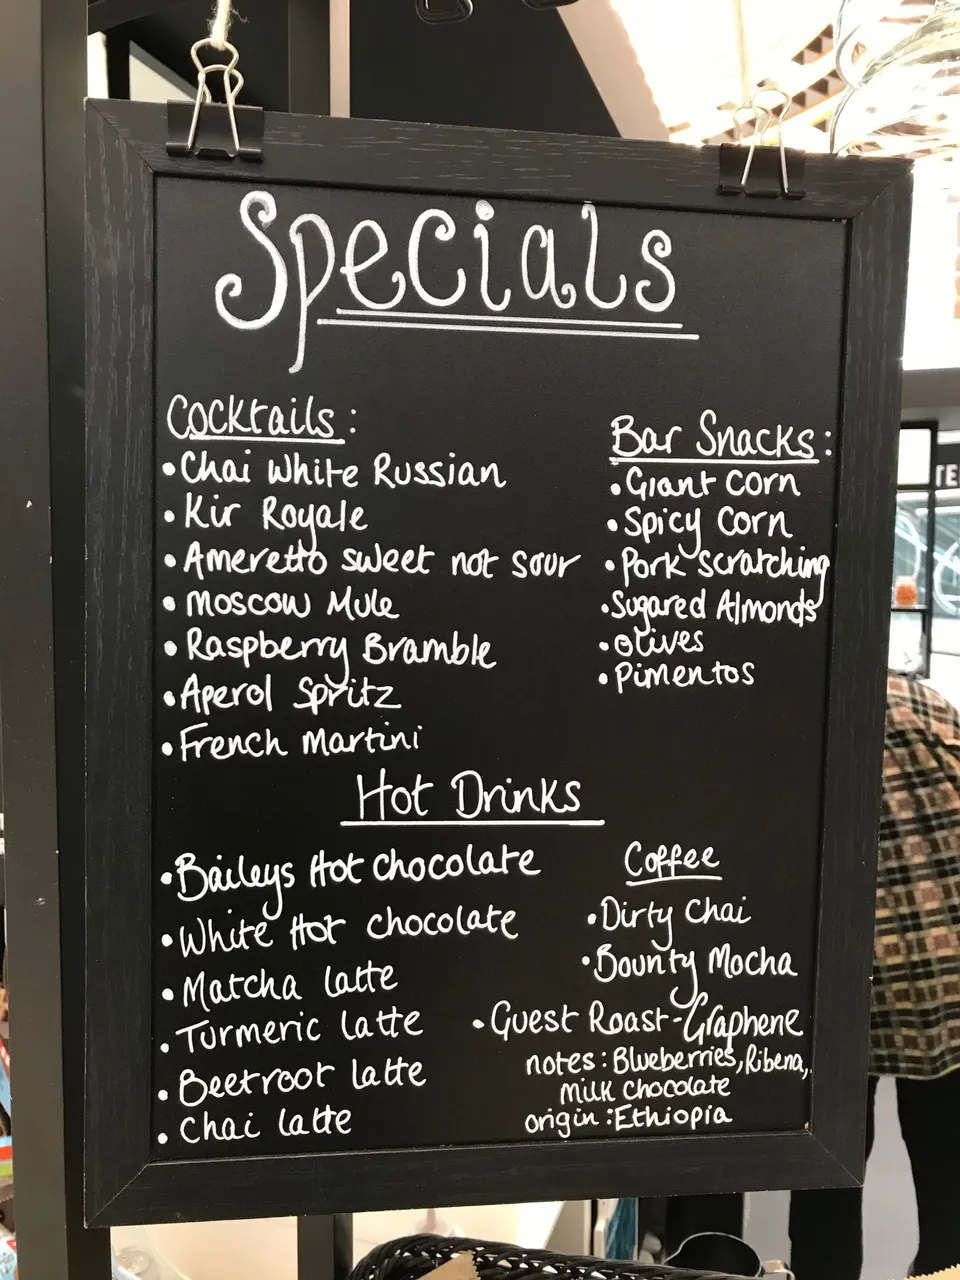 Specials
Cocktails:
•Chai White Russian
•Kir Royale
•Ameretto sweet not sour
•Moscow Mule
•Raspberry Bramble
•Aperol Spritz
•French Martini
Bar Snacks:
•Giant Corn
•Spicy Corn
•Pork Scratching
•Sugared Almonds
•Olives
•Pimentos
Hot Drinks
•Baileys Hot chocolate
•White Hot chocolate
•Matcha latte
•Turmeric latte
•Beetroot latte
•Chai latte
Coffee
•Dirty Chai
•Bounty Mocha
•Guest Roast-Graphene
notes: Blueberries, Ribena,
Milk chocolate
origin: Ethiopia